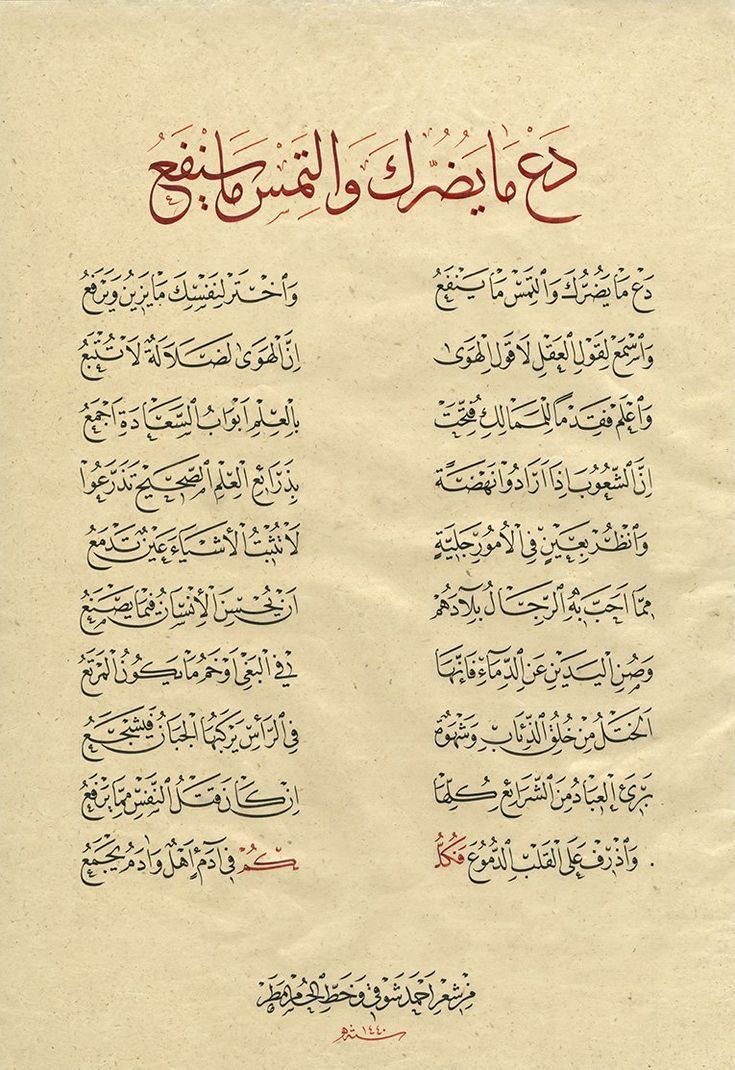 دَعْ مَا يَضُرُّكَ وَالتَمِسْ مَا يَنْفَعُ
دَعْ مَا يَضُرُّكَ وَالتَمِسْ مَا يَنْفَعُ وَاخْتَرْ لِنَفْسِكَ مَا يَزِينُ وَيَرْفَعُ
وَاسْمَعْ لِقَوْلِ العَقْلِ لَا قَوْلِ الهَوَىٰ اِنَّ الهَوَىٰ لَضَلَالَةٌ لَا تُتْبَعُ
وَاعْلَمْ فَقِدْمًا لِلْمَمَالِكِ فُتِّحَتْ بِالعِلْمِ اَبْوَابُ السَّعَادَةِ اَجْمَعُ
اِنَّ الشُّعُوبَ اِذَا اَرَادُوا نَهْضَةً بِذَرَائِعِ العِلْمِ الصَّحِيحِ تَذَرَّعُوا
وَانْظُرْ بِعَيْنٍ فِي الأُمُورِ جَلِيَّةٍ لَا تُثْبِتُ الأَشْيَاءَ عَيْنٌ تَدْمَعُ
مِمَّا اَحَبَّ بِهِ الرِّجَالُ بِلَادَهُمْ اَنْ يُحْسِنَ الإِنْسَانُ فِيمَا يَصْنَعُ
وَصُنِ اليَدَيْنِ عَنِ الدِّمَاءِ فَاِنَّهَا فِي البَغْيِ اَوْخَمُ مَا يَكُونُ المَرْتَعُ
الخَتْلُ مِنْ خُلُقِ الذِّئَابِ وَشَهْوَةٌ فِي الرَّأْسِ يَرْكَبُهَا الجَبَانُ فَيَشْجَعُ
بَرِئَ العِبَادُ مِنَ الشَّرَائِعِ كُلِّهَا اِنْ كَانَ قَتْلُ النَّفْسِ مِمَّا يَرْفَعُ
وَاذْرِفْ عَلَى القَلْبِ الدُّمُوعَ فَكُلُّ كُمْ فِي آدَمٍ اَهْلٌ وَآدَمُ يَجْمَعُ
مِنْ شِعْرِ اَحْمَدَ شَوْقِي وَخَطِّ
سنة ١٤٤٠ هـ